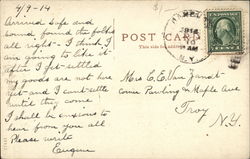 4/9-14
Arrived safe and
sound, found the folks
all right - I think I
am going to like it
after I get settled
my goods are not here
yet and I can't settle
until they come.
I shall be anxious to
hear from you all
Please write
Eugene
POST CARD
This side for address
Mrs C. Ellen
Corner Pawling & Maple Ave
Troy
N.Y.
1914
AM
N.Y.